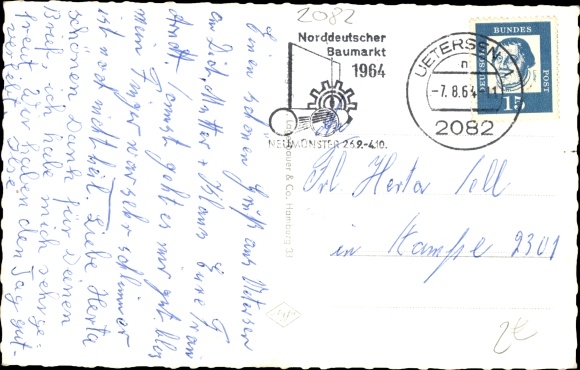 2082
Norddeutscher
Baumarkt
1964
NEUMÜNSTER 26.9.-4.10.
UETERSEN
-7.8.64-11
2082
DEUTSCHE BUNDES POST
15
Einen schönen Gruß aus Uetersen
an Dich, Mutter + Klaus
Arzt. Sonst geht es mir gut blos
mein Finger war sehr schlimm er
ist noch nicht heil. Liebe Herta
schönen Dank für Deinen
Brief, ich habe mich sehr ge-
freut. Wir haben den Tag gut
& Co., Hamburg
Frl. Herta Sell
in Kampe 2301
2€